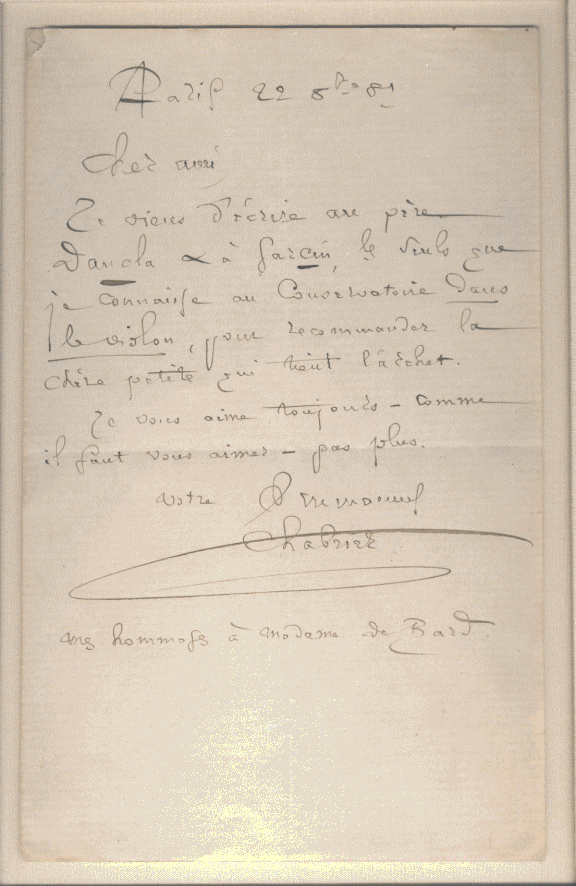 Paris 22 8bre 81
Cher ami
Je viens d'écrire au père
Dancla & à Garcin, les seuls que
je connaisse au Conservatoire dans
le violon, pour recommander la
chère petite qui tient l'archet.
Je vous aime toujours – comme
il faut vous aimer – pas plus.
votre Emmanuel
Chabrier
mes hommages à Madame de Bard